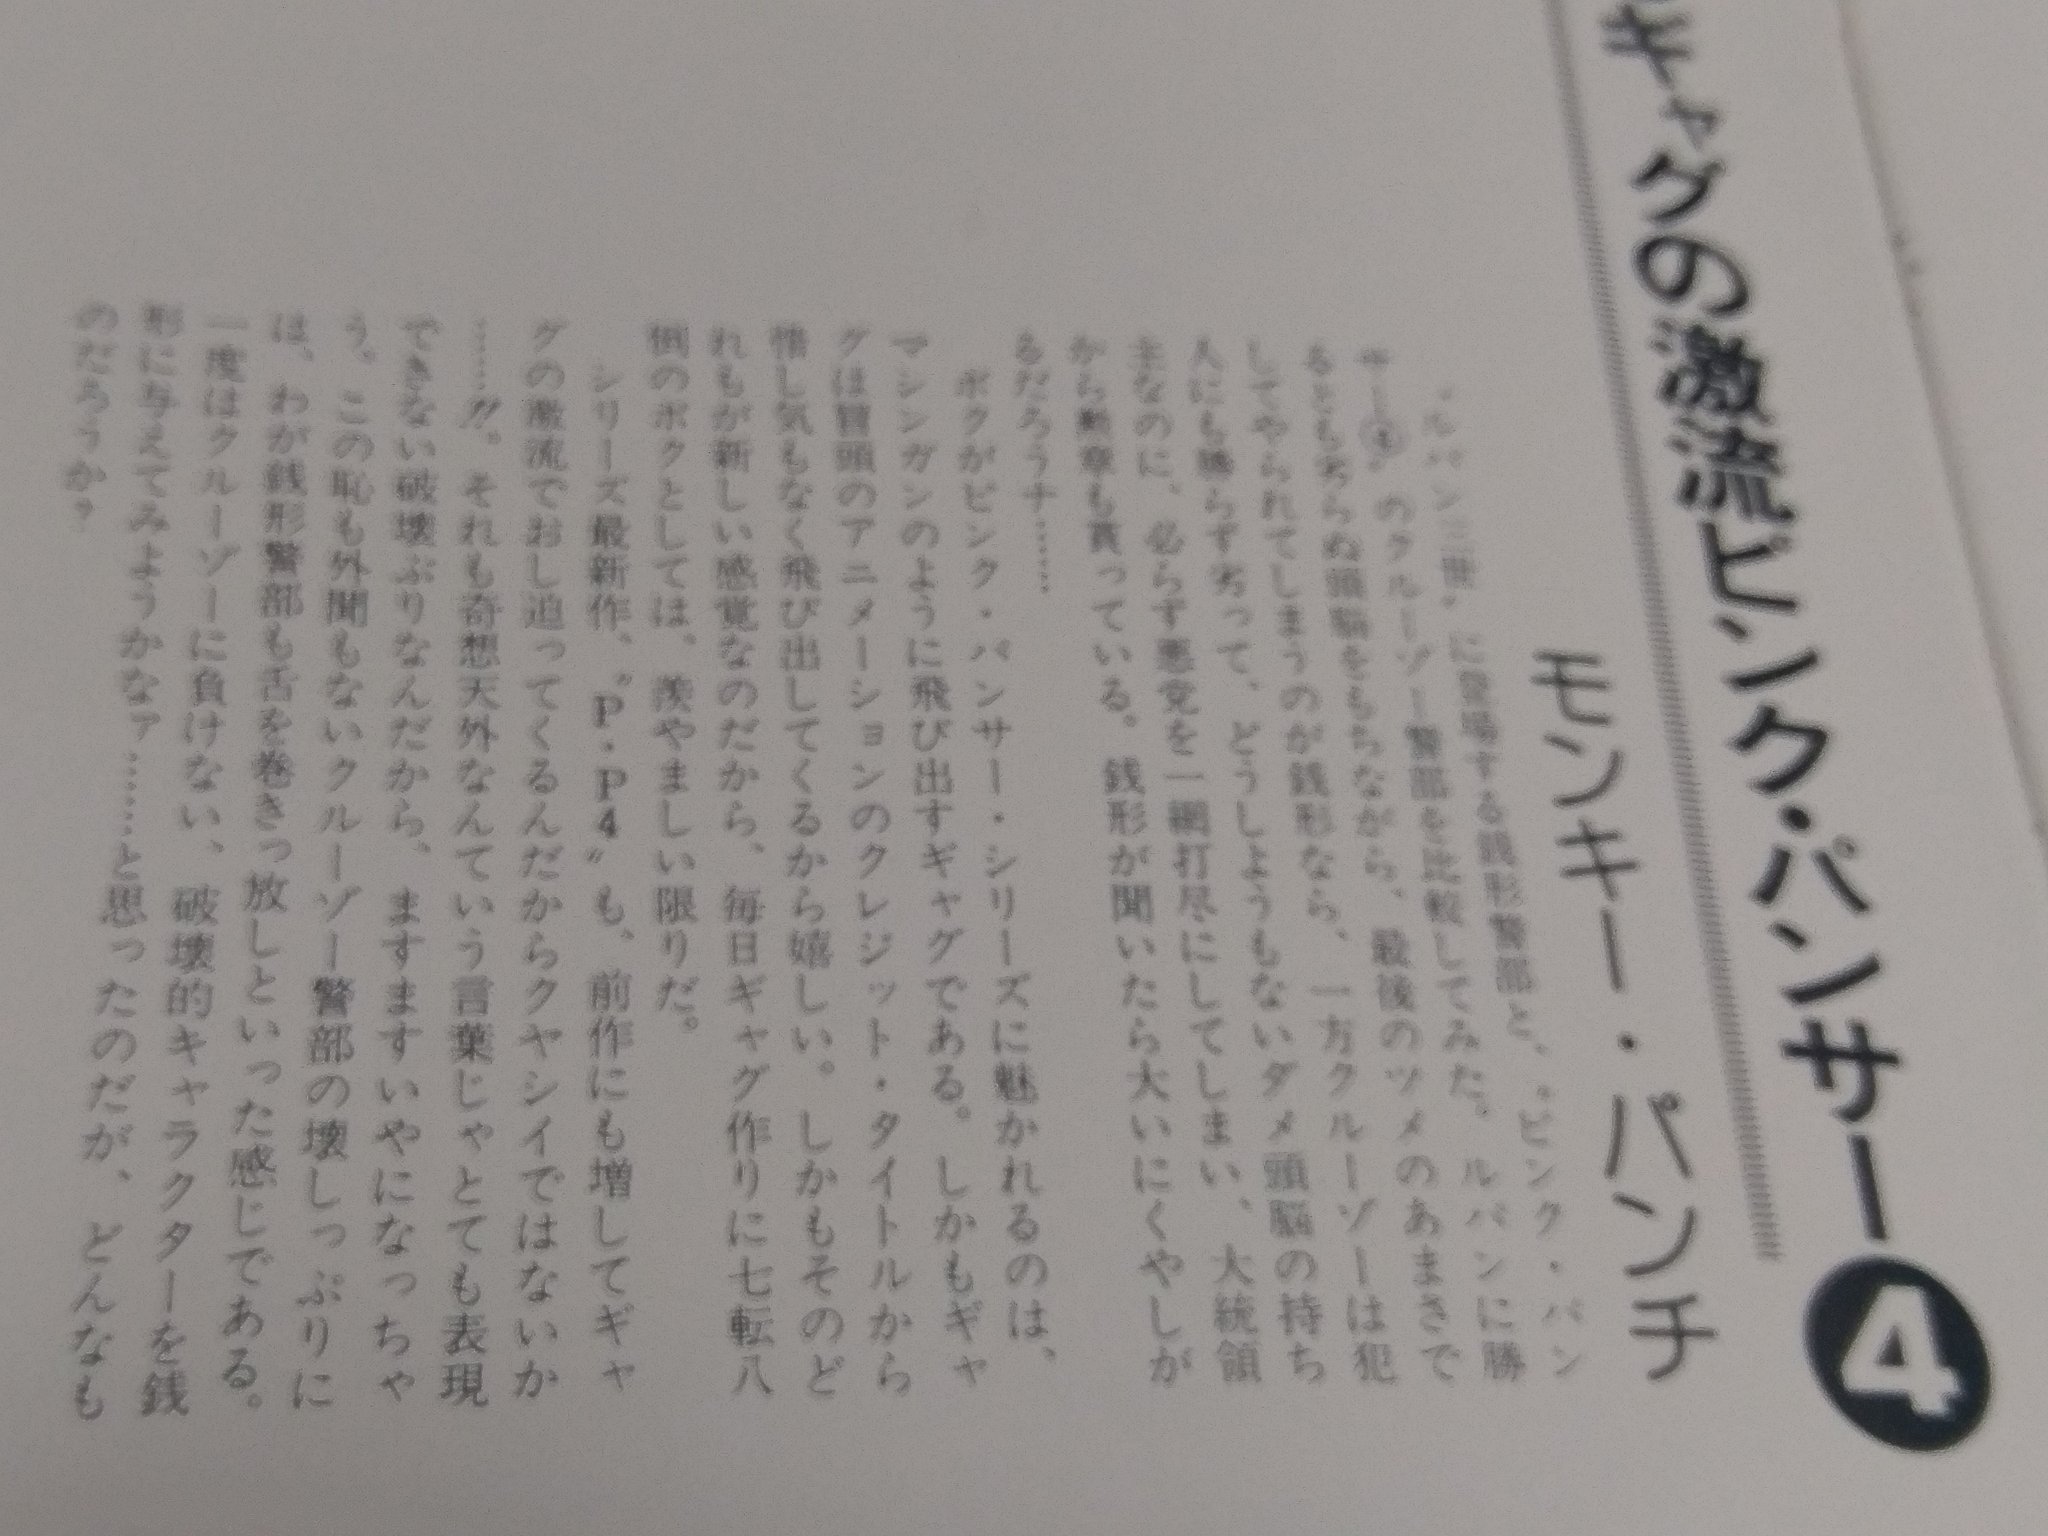 ギャグの激流ピンク・パンサー④
モンキー・パンチ
〝ルパン三世〟に登場する銭形警部と、〝ピンク・パン
サー④〟のクルーゾー警部を比較してみた。ルパンに勝
るとも劣らぬ頭脳をもちながら、最後のツメのあまさで
してやられてしまうのが銭形なら、一方クルーゾーは犯
人にも勝らず劣って、どうしようもないダメ頭脳の持ち
主なのに、必らず悪党を一網打尽にしてしまい、大統領
から勲章も貰っている。銭形が聞いたら大いにくやしが
るだろうナ……
ボクがピンク・パンサー・シリーズに魅かれるのは、
マシンガンのように飛び出すギャグである。しかもギャ
グは冒頭のアニメーションのクレジット・タイトルから
惜し気もなく飛び出してくるから嬉しい。しかもそのど
れもが新しい感覚なのだから、毎日ギャグ作りに七転八
倒のボクとしては、羨やましい限りだ。
シリーズ最新作、〝P・P4〟も、前作にも増してギャ
グの激流でおし迫ってくるんだからクヤシイではないか
……!!。それも奇想天外なんていう言葉じゃとても表現
できない破壊ぶりなんだから、ますますいやになっちゃ
う。この恥も外聞もないクルーゾー警部の壊しっぷりに
は、わが銭形警部も舌を巻きっ放しといった感じである。
一度はクルーゾーに負けない、破壊的キャラクターを銭
形に与えてみようかなァ……と思ったのだが、どんなも
のだろうか?